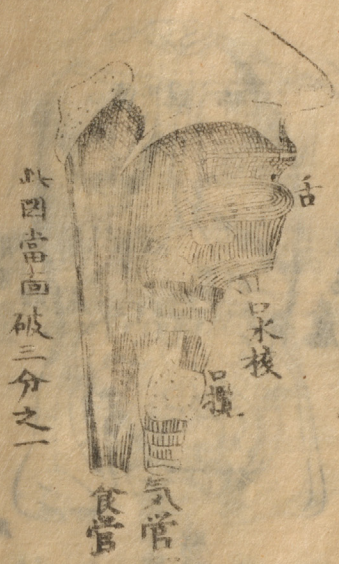 舌
口水核
気管
食管
此図當面破三分之一